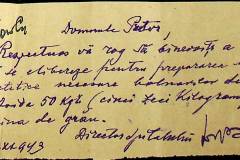 Domnule Petre,
Respectuos vă rog să binevoiți a
se elibereze pentru prepararea
dietetice necesare bolnavilor de
50 Kgr. (cinci zeci kilograme
făina de grâu.
Directorul spitalului
XI.1943